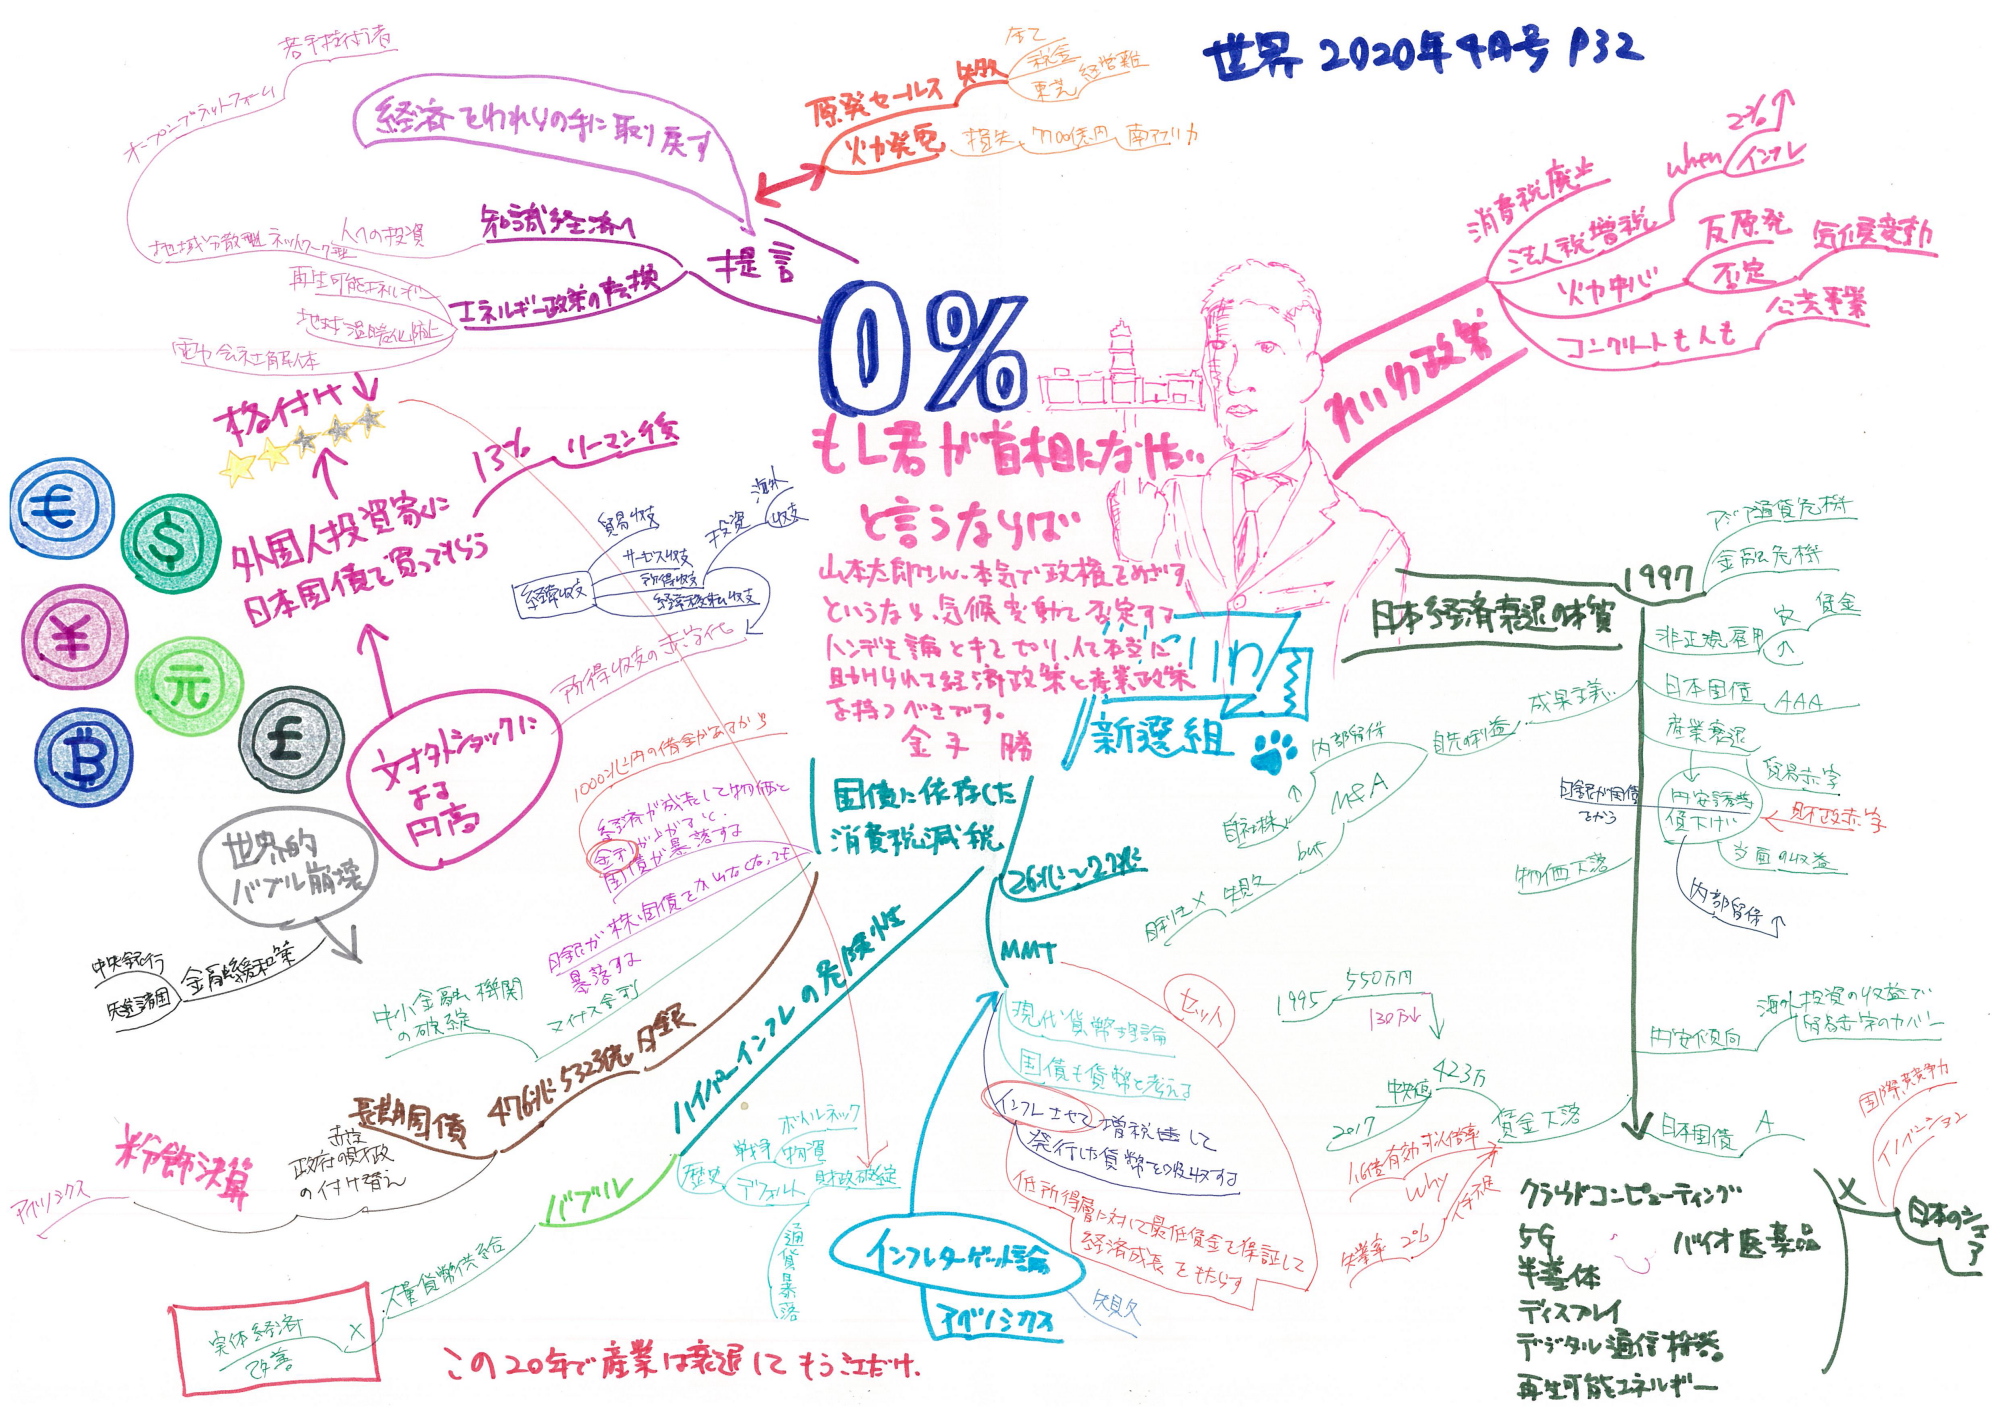 世界 2020年4月号 P32
若手担い手
オープンプラットフォーム
経済をわれらの手に取り戻す
原発セールス
失敗
全て
税金
東芝
経営難
火力発電
損失
7700億円
南アフリカ
提言
知識経済へ
人への投資
地域分散型ネットワーク型
エネルギー政策の転換
再生可能エネルギー
地球温暖化防止
電力会社解体
0%
もし君が首相になりたい
と言うならば
山本太郎さん、本気で政権をめざす
というなら、気候変動を否定する
人に助けられて経済政策と産業政策
を持つべきです。
金子 勝
れいわ政策
消費税廃止
法人税増税
when
インフレ
2%↑
火力中心
反原発
否定
気候変動
コンクリートも人も
公共事業
わ
新選組
格付け↓
外国人投資家に
日本国債を買ってもらう
13%
リーマン後
€
$
¥
元
£
B
による
円高
世界的
バブル崩壊
金融緩和策
中央銀行
先進諸国
経常収支
貿易収支
サービス収支
所得収支
経常移転収支
投資
海外
収支
所得収支の赤字化
1000兆円の借金があるから
経済が成長して物価と
金利が上がると、
国債が暴落する
日銀が株、国債をかわなくなっても
暴落する
マイナス金利
中小金融機関
の破綻
国債に依存した
消費税減税
26兆〜27兆
MMT
現代貨幣理論
国債も貨幣と考える
インフレさせて増税して
発行した貨幣を吸収する
セット
低所得層に対して最低賃金を保証して
経済成長をもたらす
インフレターゲット論
アベノミクス
失敗
ハイパーインフレの危険性
歴史
戦争
物資
ボトルネック
デフォルト
財政破綻
通貨暴落
バブル
大量貨幣供給
×
実体経済
改善
日銀
476兆5323億
長期国債
赤字
政府の財政
の付け替え
粉飾決算
アベノミクス
この20年で産業は衰退してもう江だけ.
日本経済衰退の本質
1997
アジア通貨危機
金融危機
非正規雇用
↑
賃金
日本国債
AAA
産業衰退
貿易赤字
円安誘導
賃下げ
財政赤字
当面の収益
内部留保↑
日銀が国債
成果主義
目先の利益
内部留保
自社株↑
M&A
but
失敗
目利き×
物価下落
円安傾向
海外投資の収益で
貿易赤字のカバー
1995
550万円
130万↓
2017
中央値
423万
賃金下落
1.6倍有効求人倍率
why
人手不足
失業率 2%
日本国債
A
クラウドコンピューティング
5G
バイオ医薬品
半導体
ディスプレイ
デジタル通信機器
再生可能エネルギー
×
日本のシェア
国際競争力
イノベーション